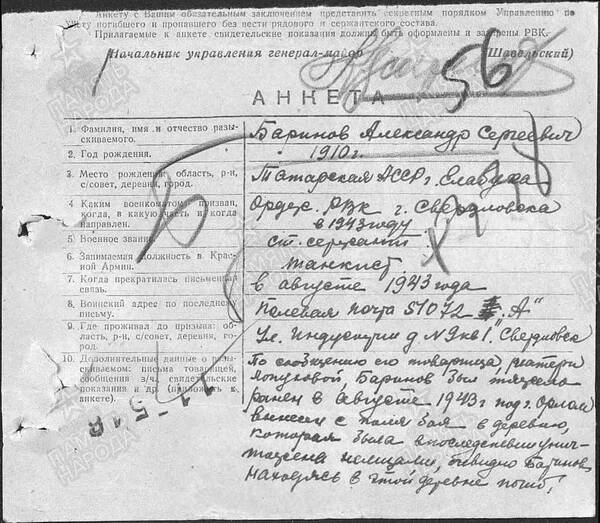 Анкету с Вашим обязательным заключением представить секретным порядком Управлению по
учету погибшего и пропавшего без вести рядового и сержантского состава.
Прилагаемые к анкете свидетельские показания должны быть оформлены и заверены РВК.
Начальник управления генерал-майор (Шавельский)
56
АНКЕТА
1. Фамилия, имя и отчество разыскиваемого.
Баринов Александр Сергеевич
2. Год рождения.
1910г.
3. Место рождения: область, р-н,
с/совет, деревня, город.
Татарская АССР г. Елабуга
4. Каким военкоматом призван,
когда, в какую часть и когда
направлен.
Ордж. РВК г. Свердловска
в 1943 году
5. Военное звание.
ст. сержант
6. Занимаемая должность в Крас-
ной Армии.
танкист
7. Когда прекратилась письменная
связь.
в августе 1943 года
8. Воинский адрес по последнему
письму.
Полевая почта 51072 "А"
9. Где проживал до призыва: об-
ласть, р-н, с/совет, деревня, го-
род.
ул. Индустрии д N9 кв 1. Свердловск
10. Дополнительные данные о разы-
скиваемом: письма товарищей,
сообщения в/ч., свидетельские
показания и др. (приложить к
анкете).
По сообщению его товарища, матери
Баринов был тяжело
ранен в августе 1943 под г. Орлом
вынесен с поля боя в деревню,
которая была впоследствии унич-
тожена немцами, очевидно Баринов
находясь в этой деревне погиб.
ПАМЯТЬ
НАРОДА